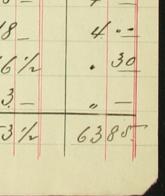 8 — 4 "
6 1/2 . 30
3 — " —
3 1/2 6385